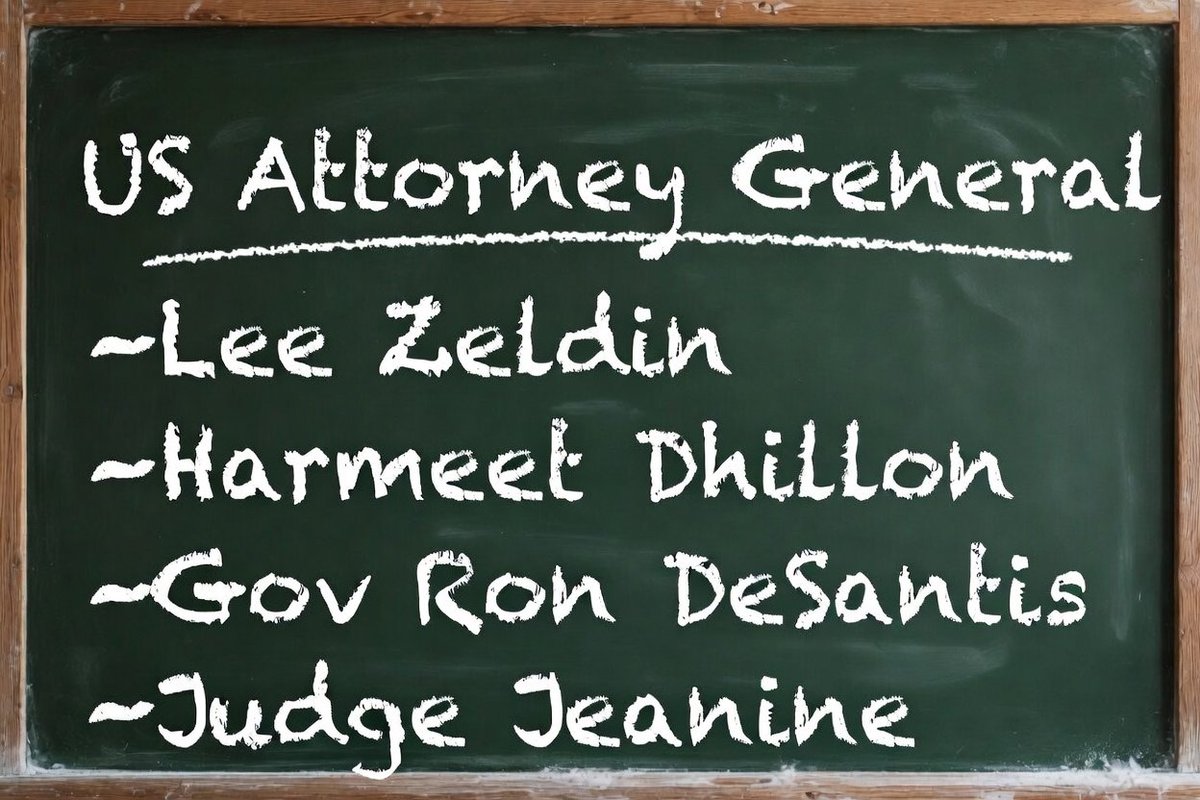 US Attorney General
~Lee Zeldin
~Harmeet Dhillon
~Gov Ron DeSantis
~Judge Jeanine